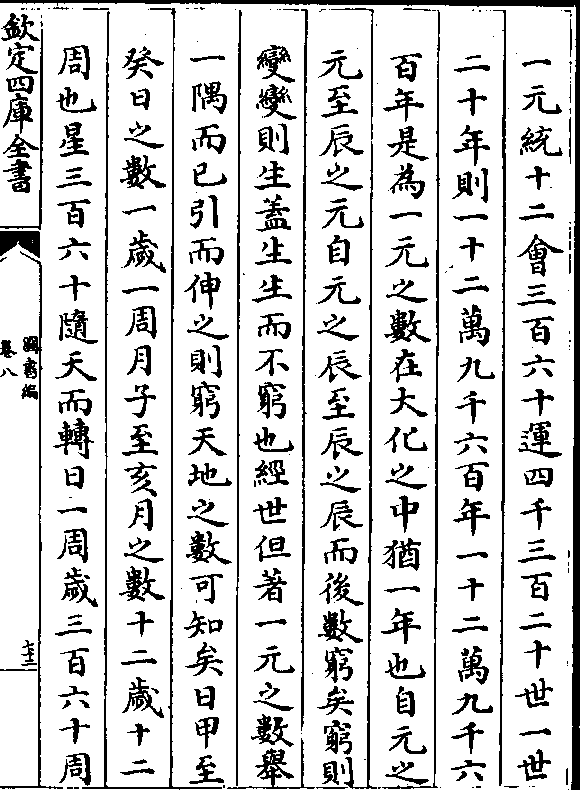 一元統十二會三百六十運四千三百二十世一世
二十年則一十二萬九千六百年一十二萬九千六
百年是為一元之數在大化之中猶一年也自元之
元至辰之元自元之辰至辰之辰而後數窮矣窮則
變變則生蓋生生而不窮也經世但著一元之數舉
一隅而已引而伸之則窮天地之數可知矣日甲至
癸日之數一歲一周月子至亥月之數十二歲十二
周也星三百六十隨天而轉日一周歲三百六十周
欽定四庫全書
圖書編
卷八